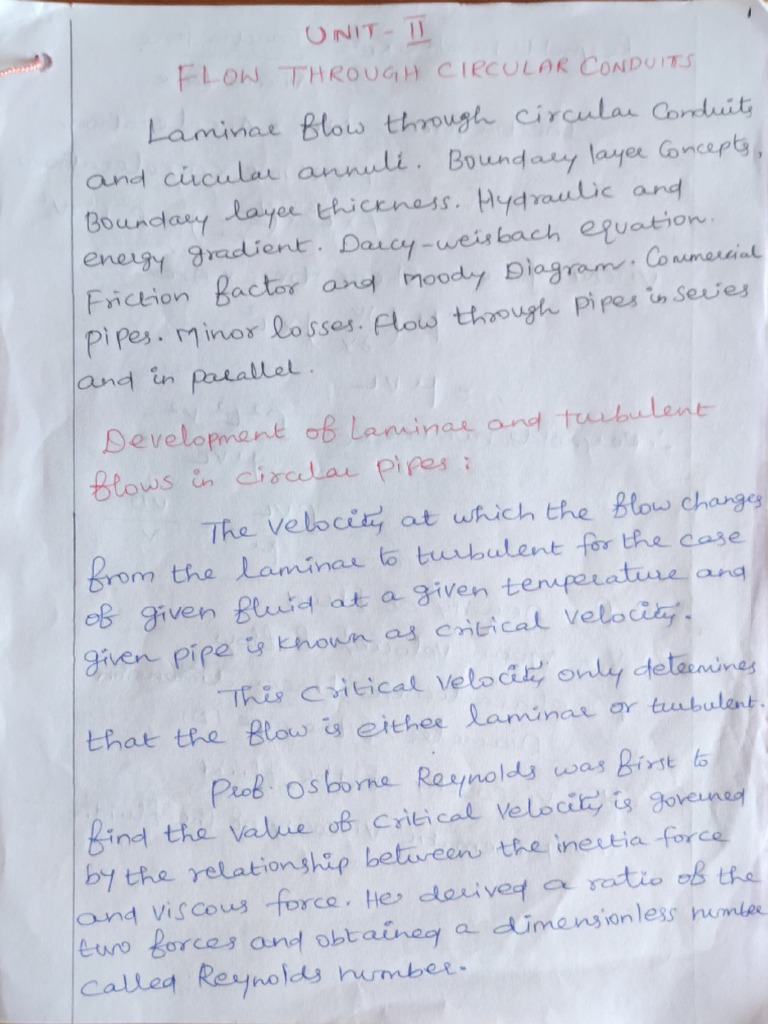 1
UNIT - II
FLOW THROUGH CIRCULAR CONDUITS
Laminar flow through circular Conduits
and circular annuli. Boundary layer Concepts,
Boundary layer thickness. Hydraulic and
energy gradient. Darcy-weisbach equation.
Friction factor and Moody Diagram. Commercial
pipes. Minor losses. Flow through pipes in series
and in parallel.
Development of Laminar and turbulent
flows in circular pipes :
The velocity, at which the flow changes
from the laminar to turbulent for the case
of given fluid at a given temperature and
given pipe is known as critical velocity.
This critical velocity only determines
that the flow is either laminar or turbulent.
Prof. Osborne Reynolds was first to
find the value of critical velocity is governed
by the relationship between the inertia force
and viscous force. He derived a ratio of the
two forces and obtained a dimensionless number
called Reynolds number.